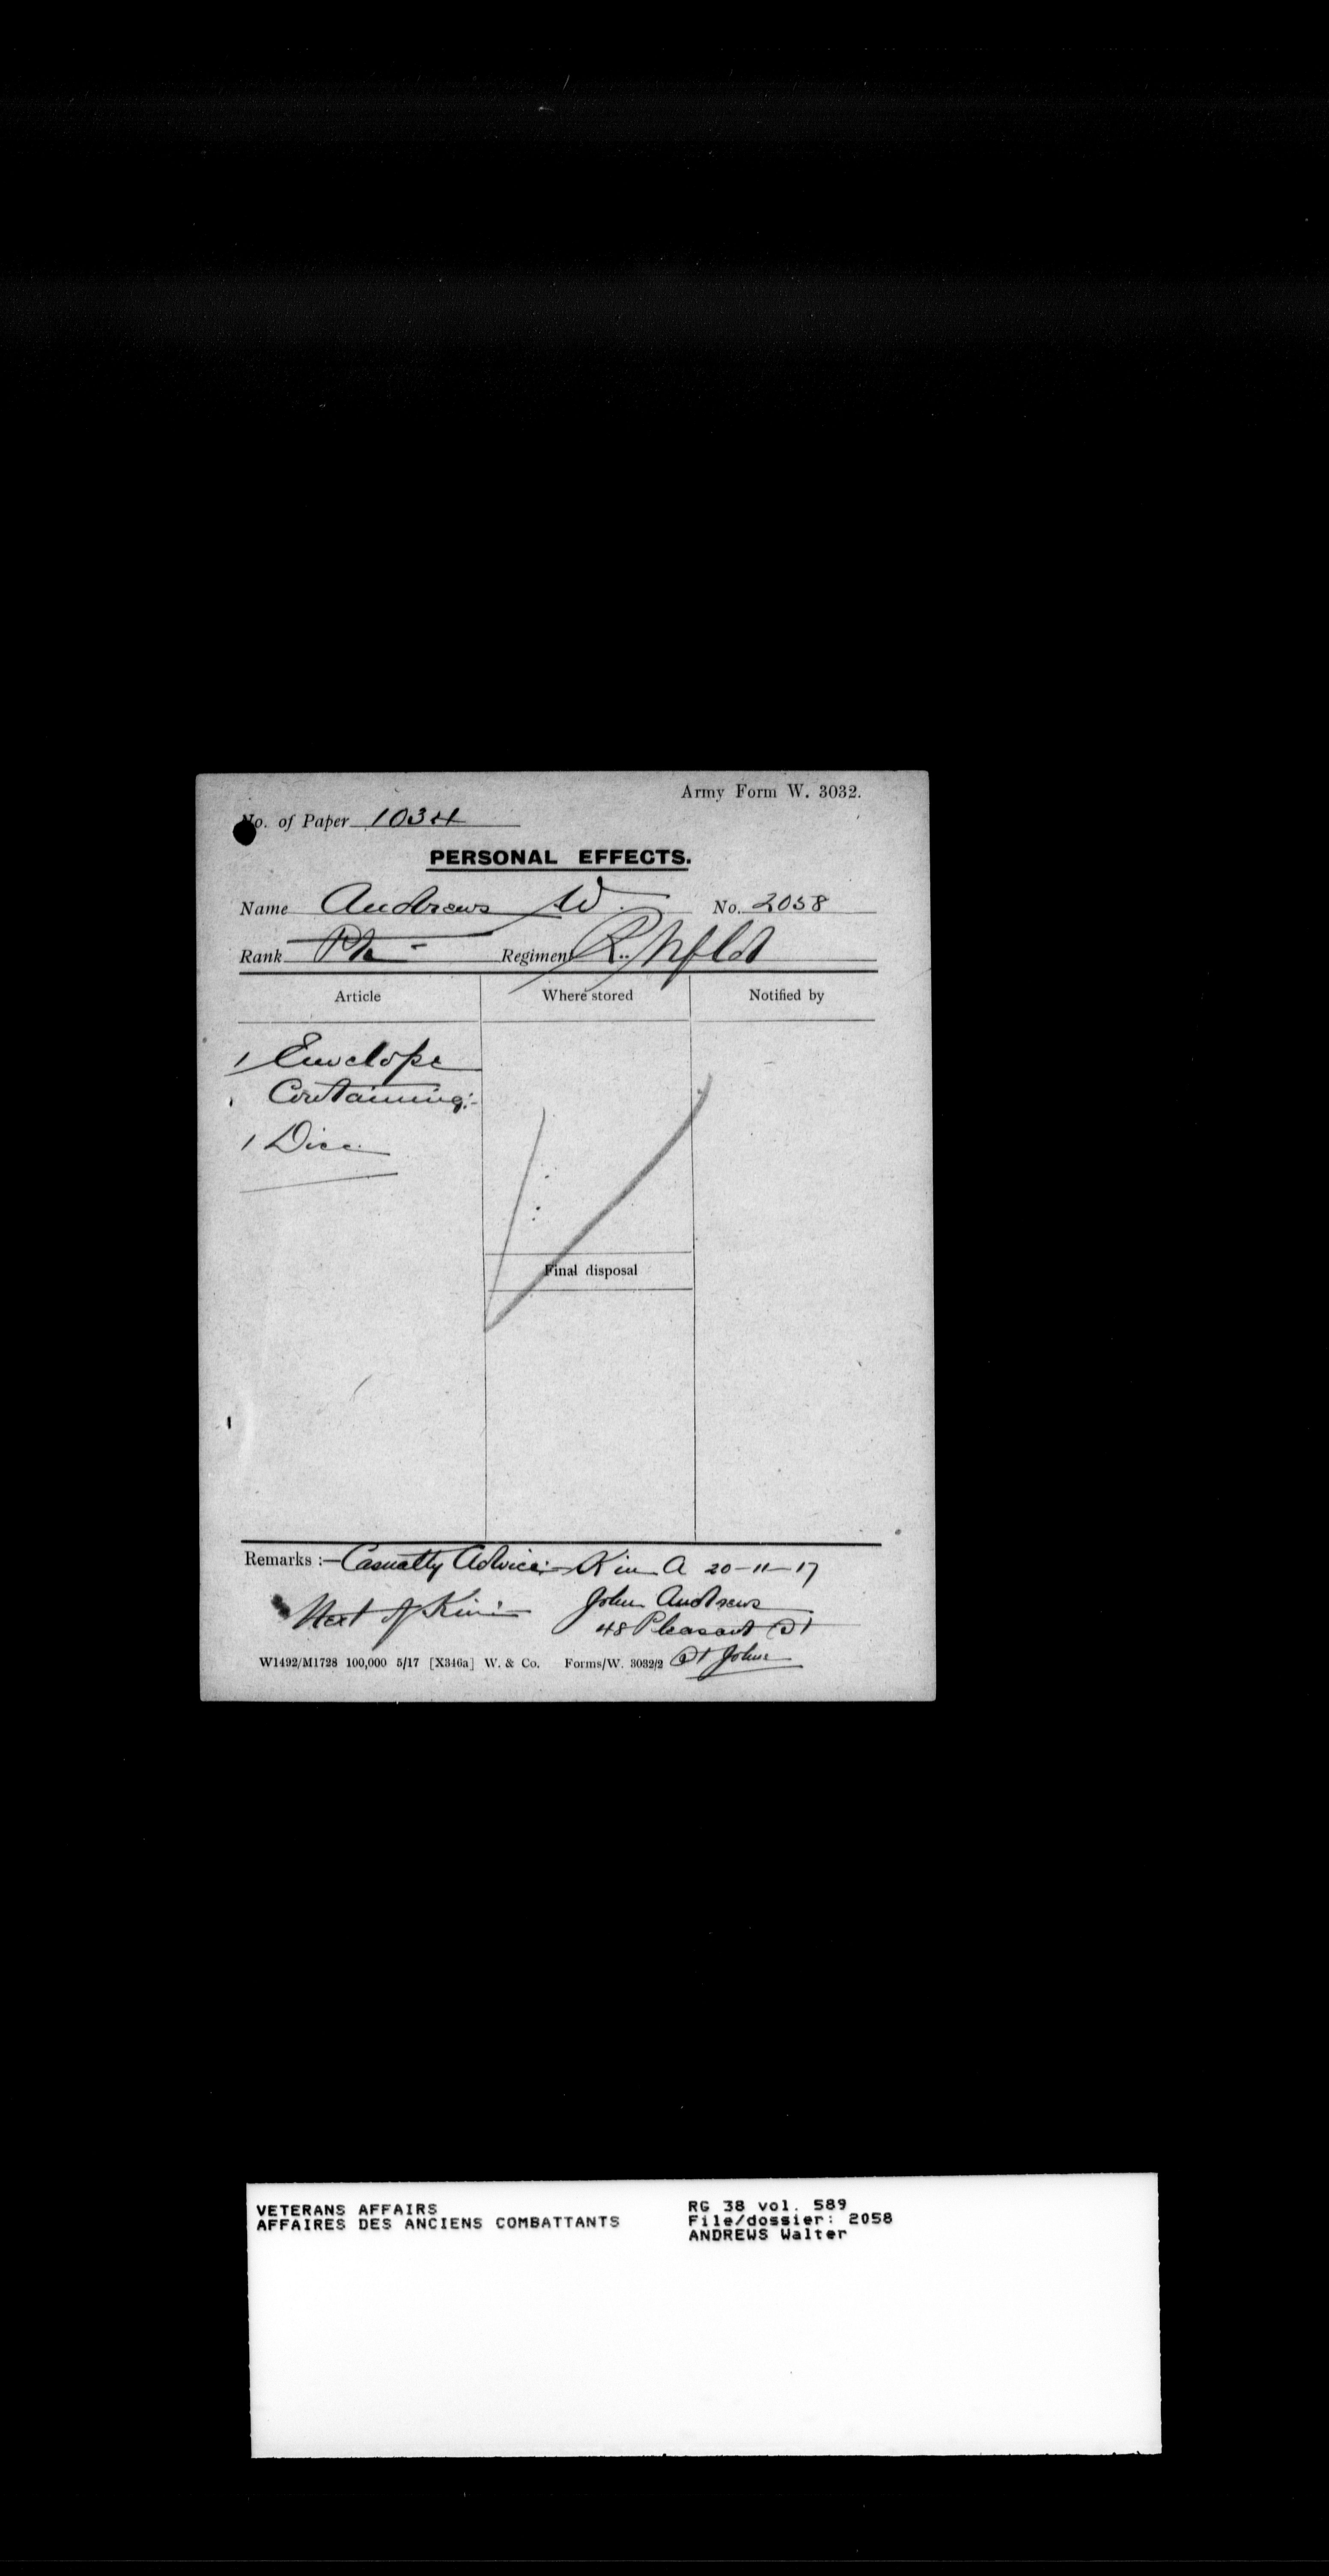 Army Form W. 3032.
No. of Paper 1034
PERSONAL EFFECTS.
Name Andrews W. No. 2058
Rank Pte - Regiment R. Nfld
Article Where stored Notified by
1 Envelope
Containing:-
1 Disc
Final disposal
Remarks :- Casualty Advice:- K in A 20-11-17
Next of Kin:- John Andrews
48 Pleasant St
St Johns
W1492/M1728 100,000 5/17 [X346a] W. & Co. Forms/W. 3032/2
VETERANS AFFAIRS RG 38 vol. 589
AFFAIRES DES ANCIENS COMBATTANTS File/dossier: 2058
ANDREWS Walter